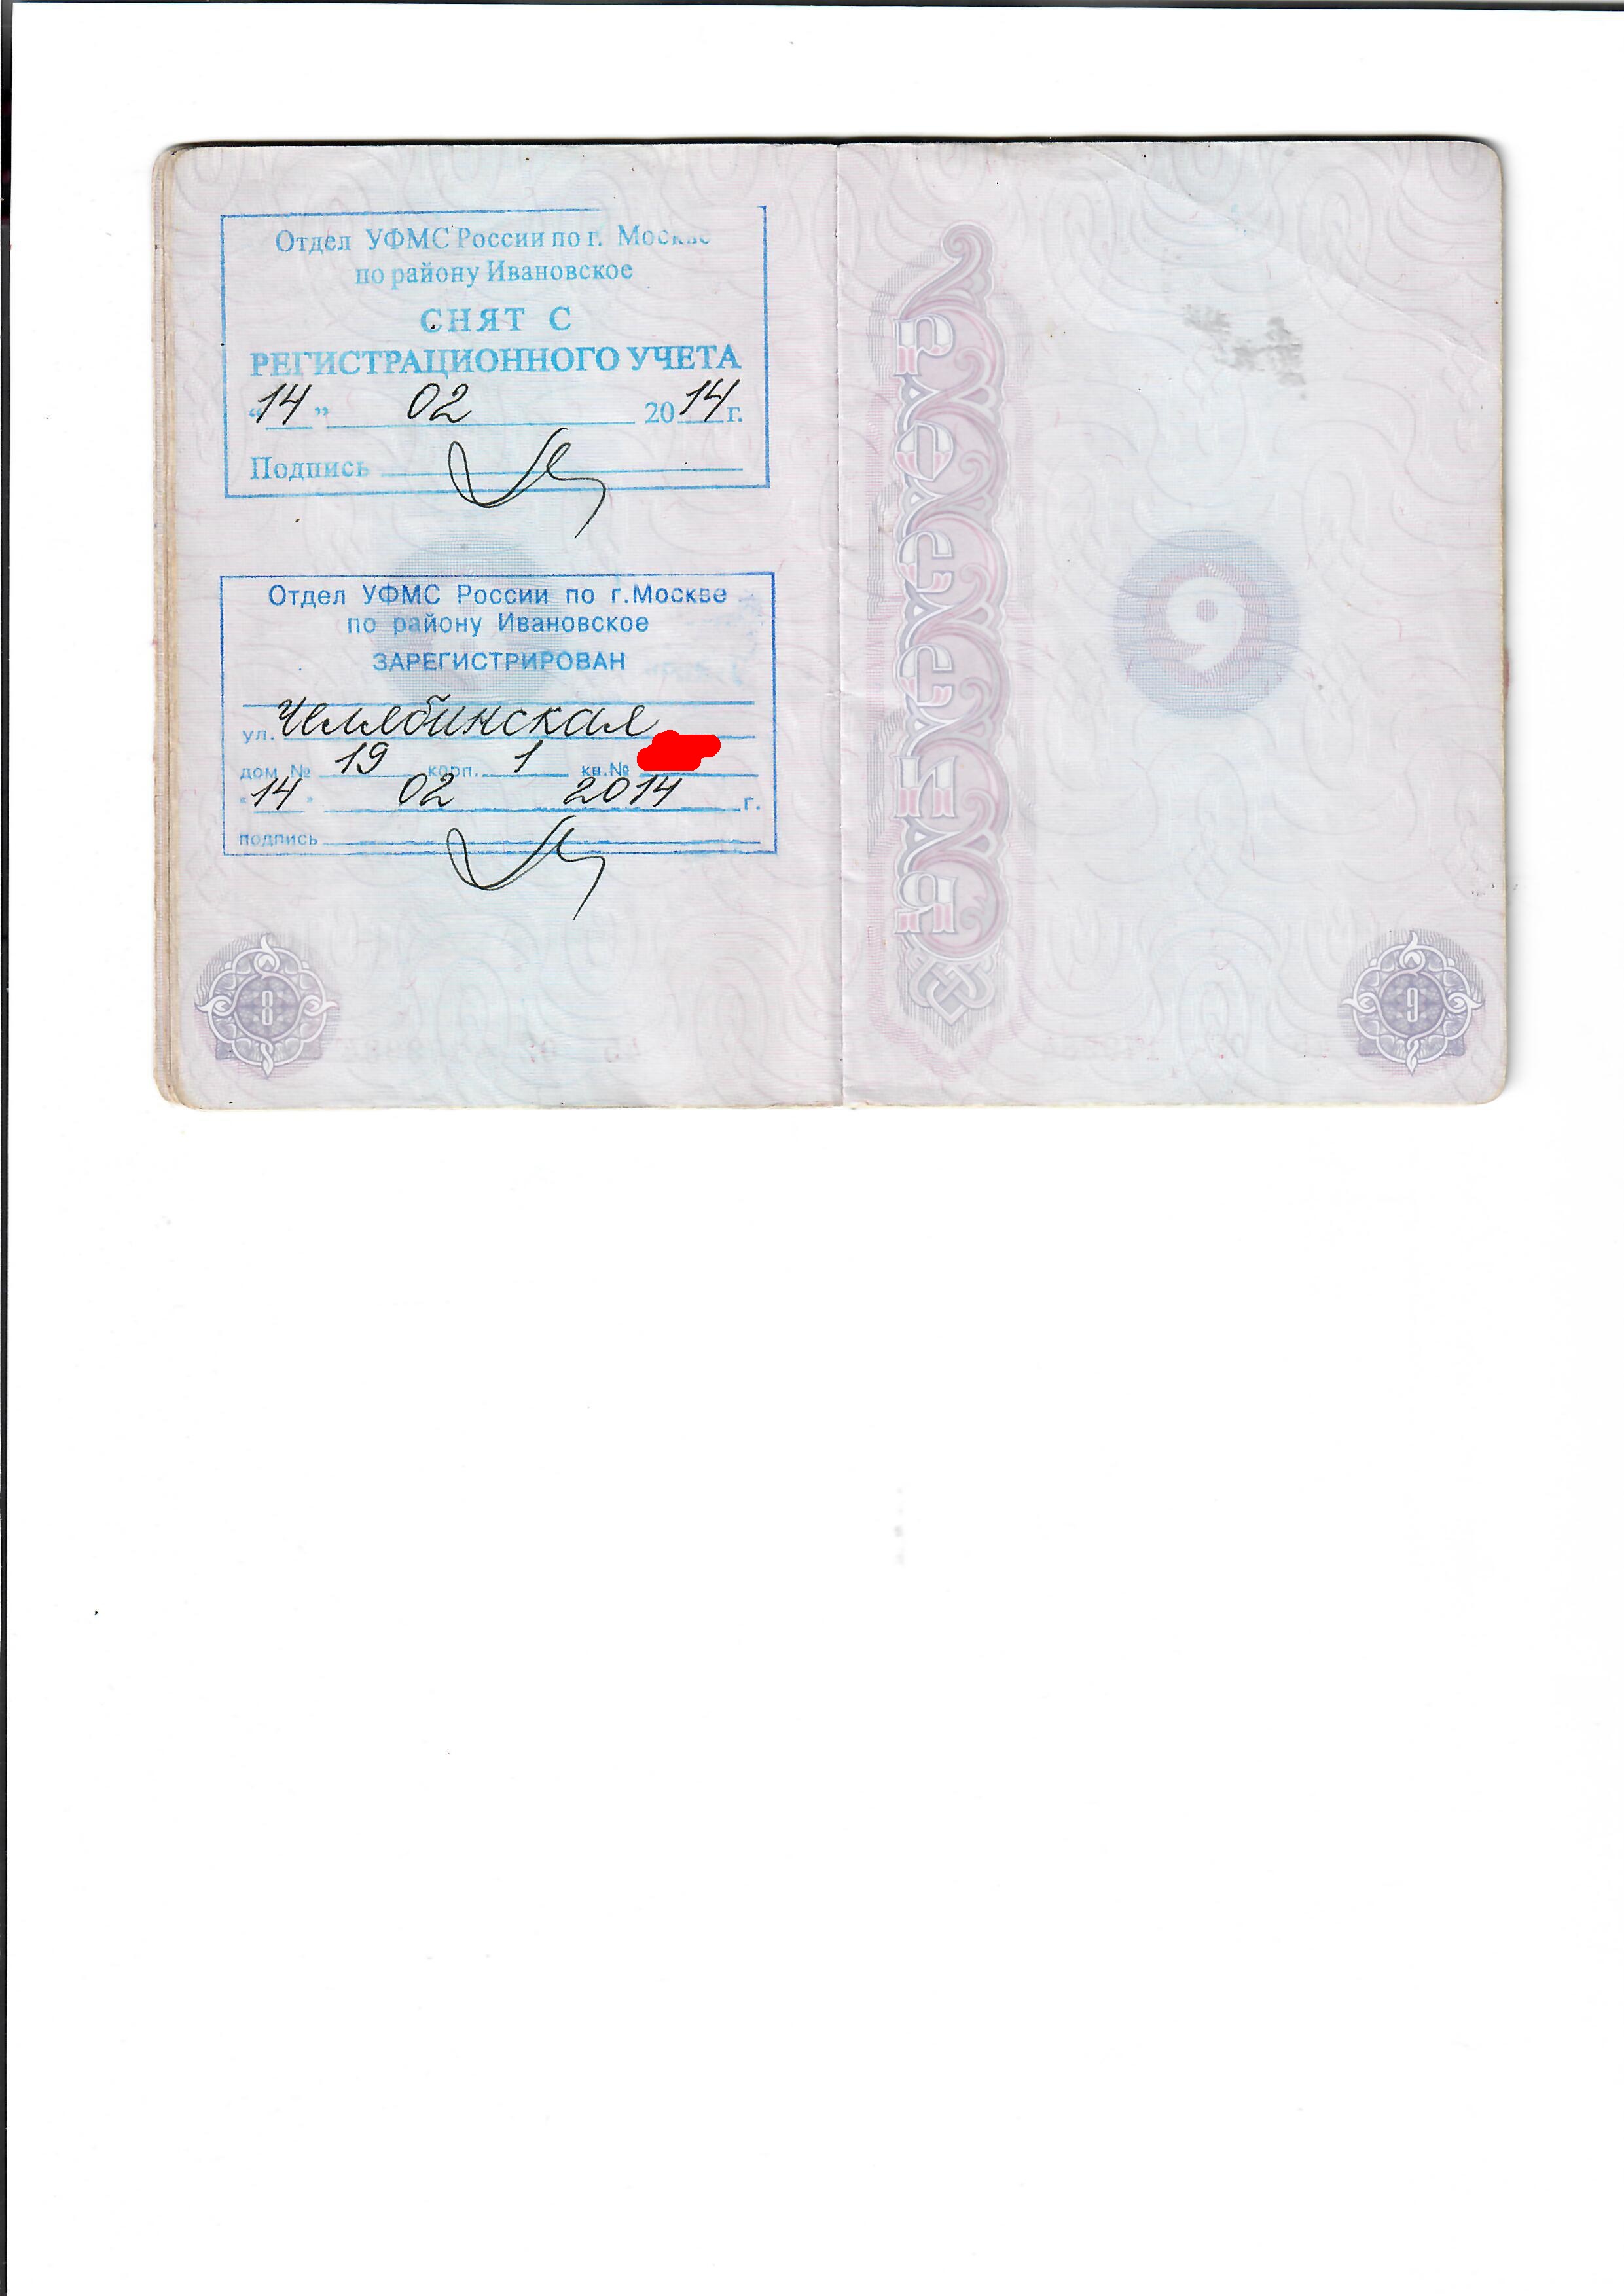 Отдел УФМС России по г. Москве
по району Ивановское
СНЯТ С
РЕГИСТРАЦИОННОГО УЧЕТА
"14" 02 2014 г.
Подпись
Отдел УФМС России по г.Москве
по району Ивановское
ЗАРЕГИСТРИРОВАН
ул. Челябинская
дом № 19 корп. 1 кв.№
"14" 02 2014 г.
подпись
8
9
9